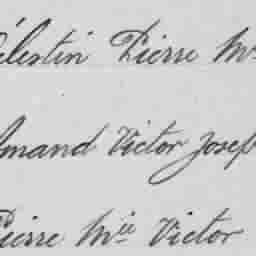 Célestin Pierre Mie
Amand Victor Joseph
Pierre Mie Victor